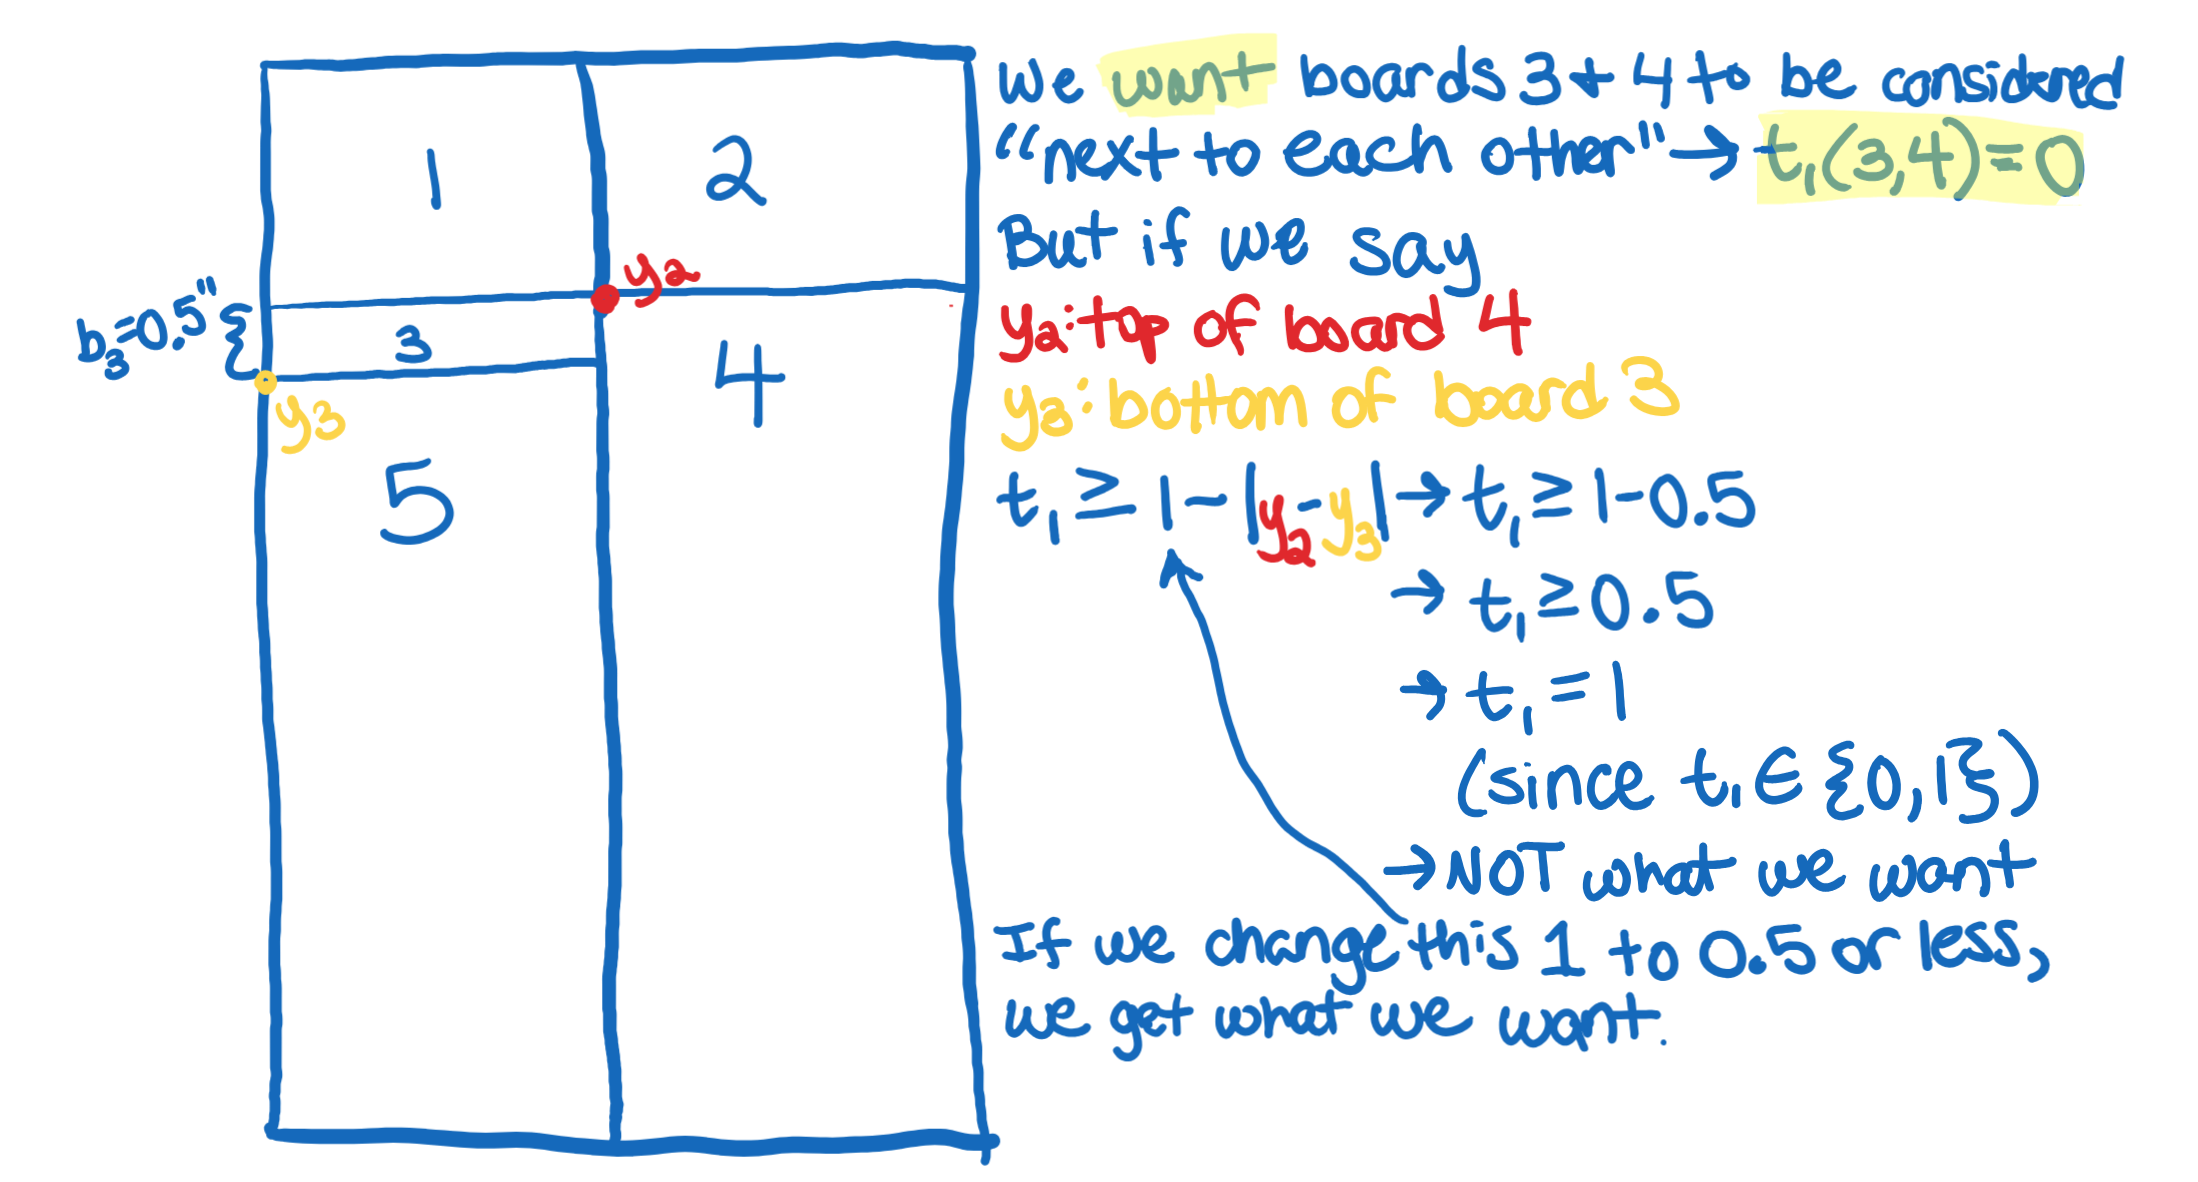 1
2
We want boards 3 + 4 to be considered
"next to each other" → t₁(3,4)=0
But if we say
y₂
y₂: top of board 4
b₃=0.5" {
3
4
y₃
y₃: bottom of board 3
5
t₁ ≥ 1 - |y₂-y₃| → t₁ ≥ 1-0.5
→ t₁ ≥ 0.5
→ t₁ = 1
(since t₁ ∈ {0,1})
→ NOT what we want
If we change this 1 to 0.5 or less,
we get what we want.